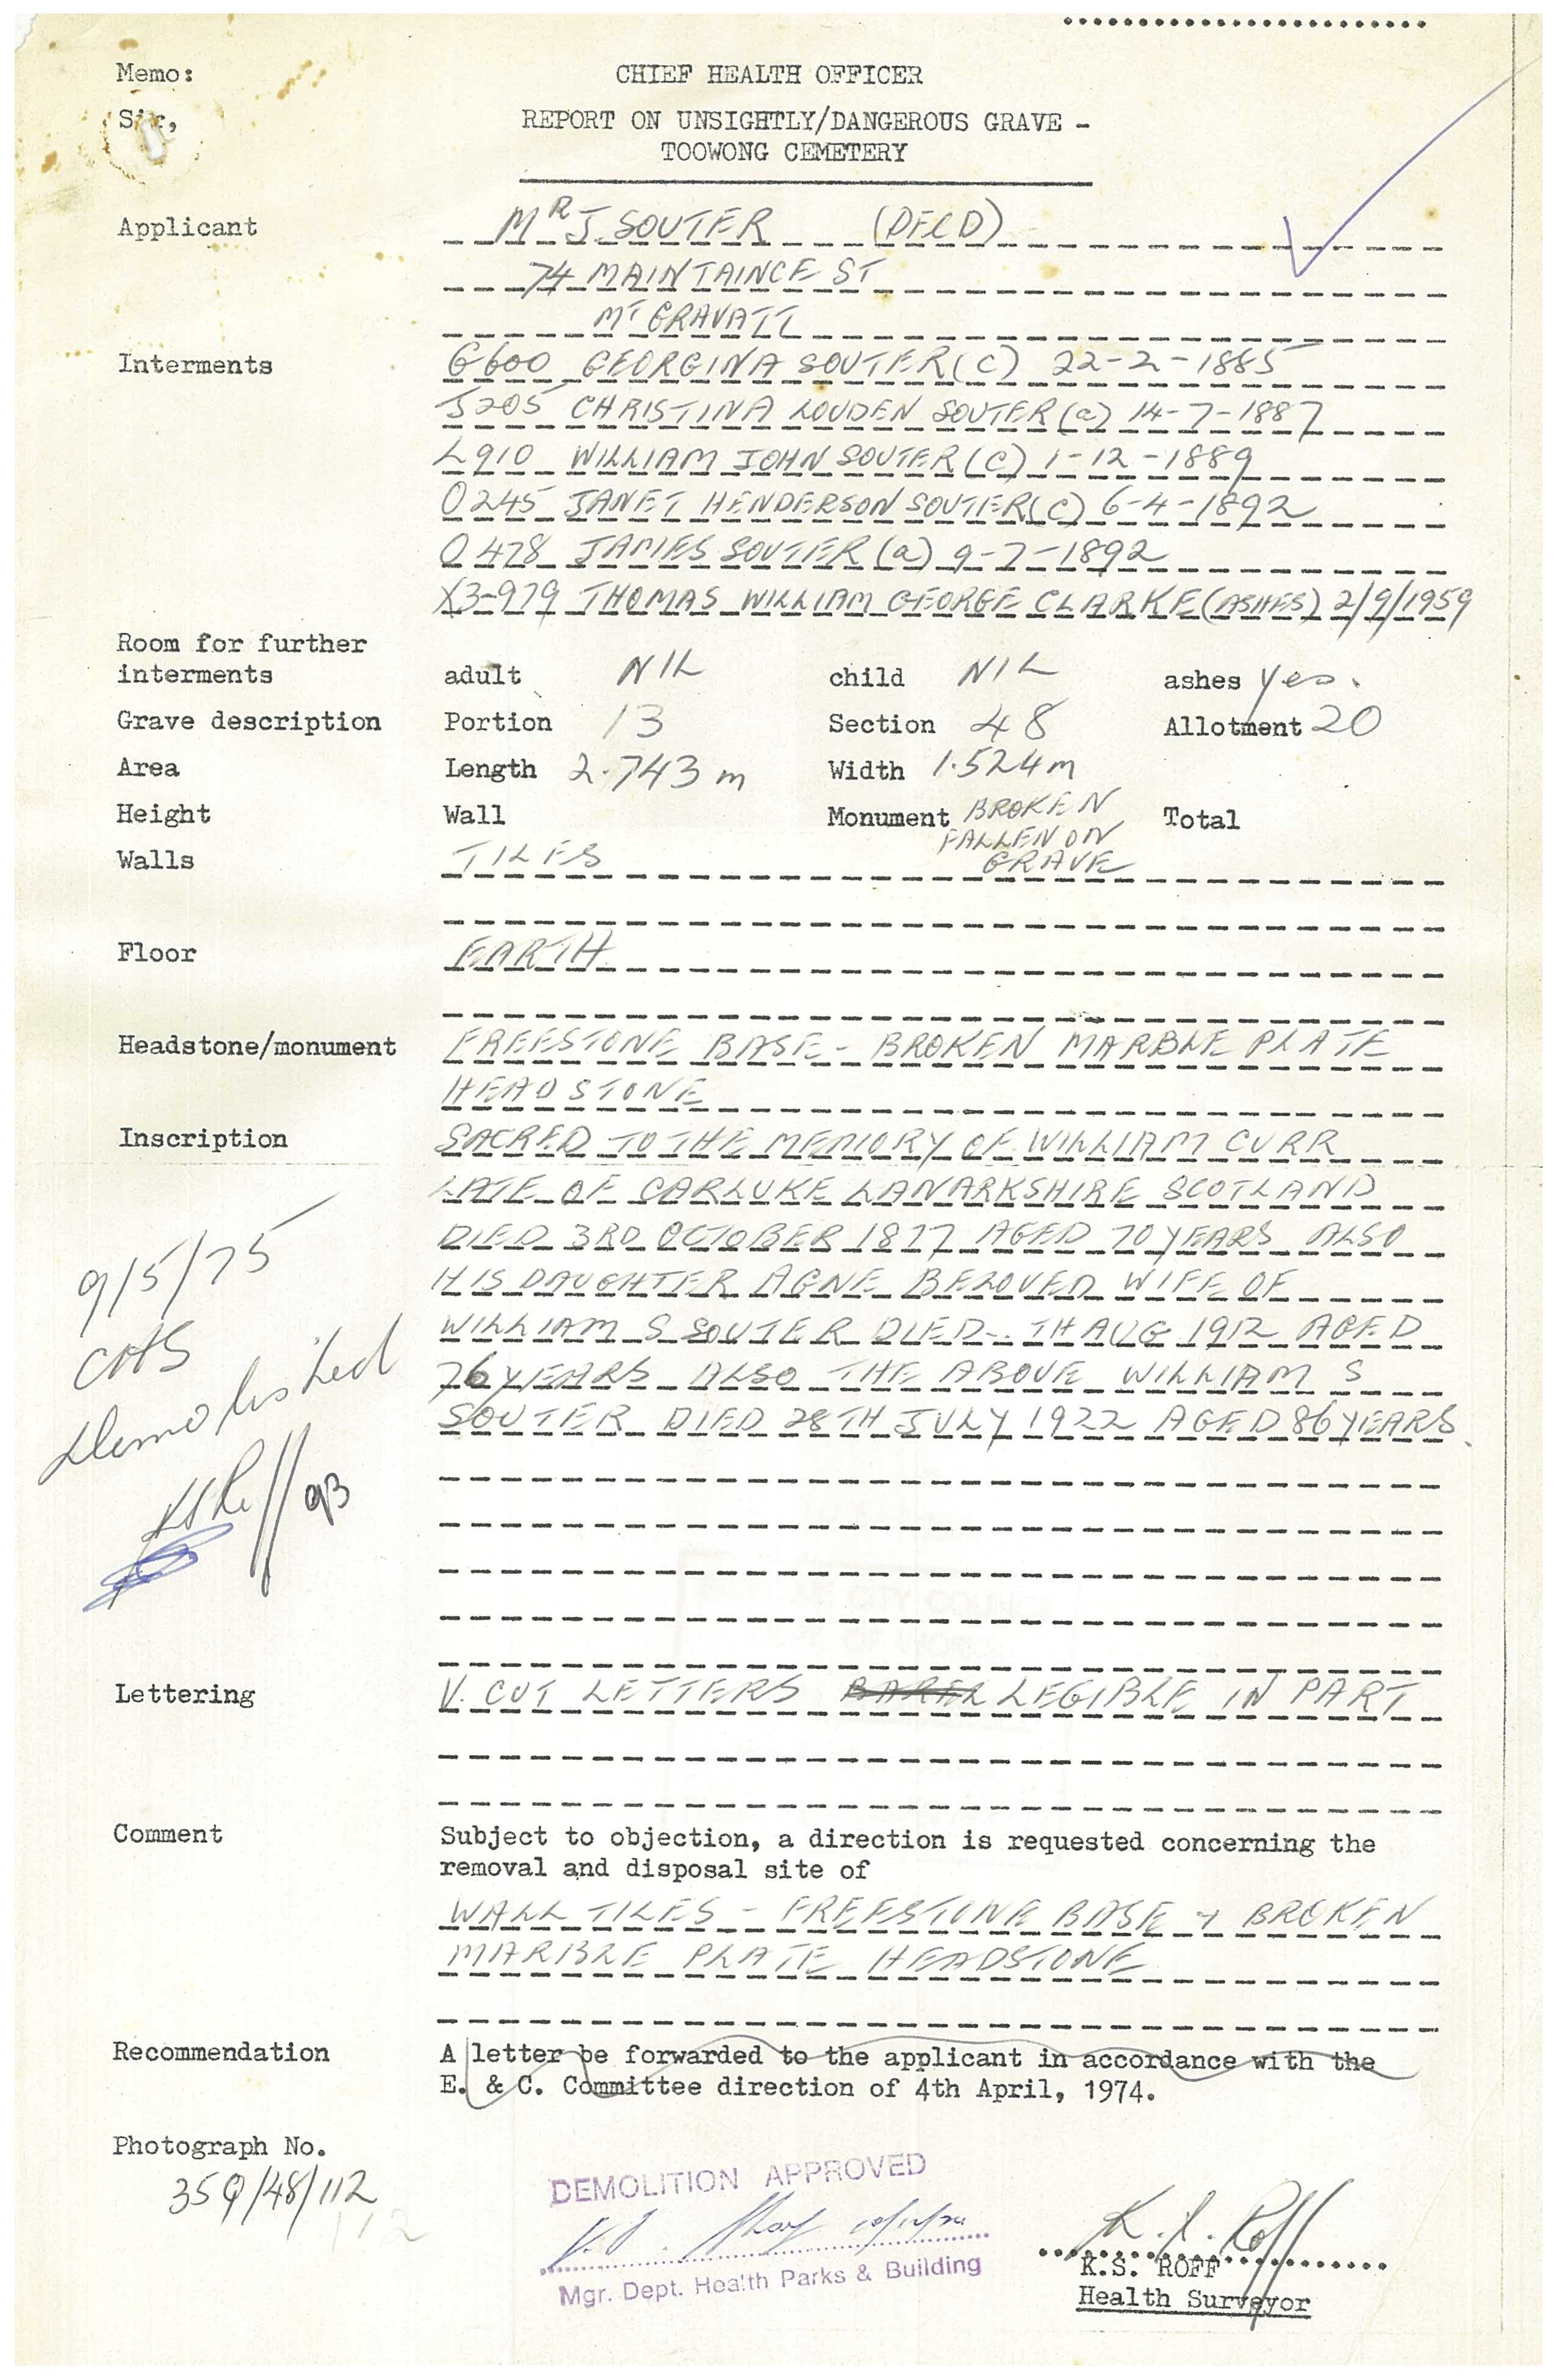 Memo: CHIEF HEALTH OFFICER
Sir, REPORT ON UNSIGHTLY/DANGEROUS GRAVE -
TOOWONG CEMETERY
Applicant MR J. SOUTER (DECD)
74 MAINTAINCE ST
MT GRAVATT
Interments G600 GEORGINA SOUTER (C) 22-2-1885
J205 CHRISTINA LOUDEN SOUTER (a) 14-7-1887
L910 WILLIAM JOHN SOUTER (C) 1-12-1889
O245 JANET HENDERSON SOUTER (C) 6-4-1892
O478 JAMES SOUTER (a) 9-7-1892
X3-979 THOMAS WILLIAM GEORGE CLARKE (ASHES) 2/9/1959
Room for further
interments adult NIL child NIL ashes Yes.
Grave description Portion 13 Section 48 Allotment 20
Area Length 2.743 m Width 1.524 m
Height Wall Monument BROKEN Total
FALLEN ON
Walls TILES GRAVE
Floor EARTH
Headstone/monument FREESTONE BASE - BROKEN MARBLE PLATE
HEADSTONE
Inscription SACRED TO THE MEMORY OF WILLIAM CURR
LATE OF CARLUKE LANARKSHIRE SCOTLAND
DIED 3RD OCTOBER 1877 AGED 70 YEARS ALSO
HIS DAUGHTER AGNE BELOVED WIFE OF
WILLIAM S SOUTER DIED -. TH AUG 1912 AGED
76 YEARS ALSO THE ABOVE WILLIAM S
SOUTER DIED 28TH JULY 1922 AGED 86 YEARS.
9/5/75
CHS
Demolished
KSRoff
Lettering V. CUT LETTERS LEGIBLE IN PART
Comment Subject to objection, a direction is requested concerning the
removal and disposal site of
WALL TILES - FREESTONE BASE + BROKEN
MARBLE PLATE HEADSTONE
Recommendation A letter be forwarded to the applicant in accordance with the
E. & C. Committee direction of 4th April, 1974.
Photograph No.
359/48/112
112
DEMOLITION APPROVED
Mgr. Dept. Health Parks & Building
K. S. Roff
K.S. ROFF
Health Surveyor